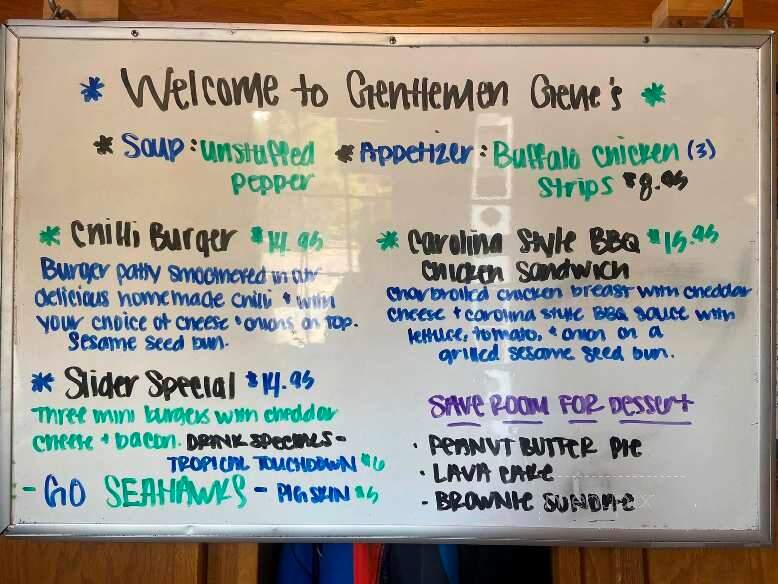 * Welcome to Gentlemen Gene's *
* Soup: Unstuffed Pepper
* Appetizer: Buffalo Chicken (3) Strips $8.95
* Chilli Burger $14.95
Burger patty smoothered in our
delicious homemade chili + with
your choice of cheese + onions on top.
Sesame seed bun.
* Carolina Style BBQ $15.95
Chicken Sandwich
Charbroiled chicken breast with cheddar
cheese + carolina style BBQ sauce with
lettuce, tomato, + onion on a
grilled sesame seed bun.
* Slider Special $14.95
Three mini burgers with cheddar
cheese + bacon.
DRINK SPECIALS-
TROPICAL TOUCHDOWN $6
- GO SEAHAWKS - PIGSKIN $5
SAVE ROOM FOR DESSERT
· PEANUT BUTTER PIE
· LAVA CAKE
· BROWNIE SUNDAE